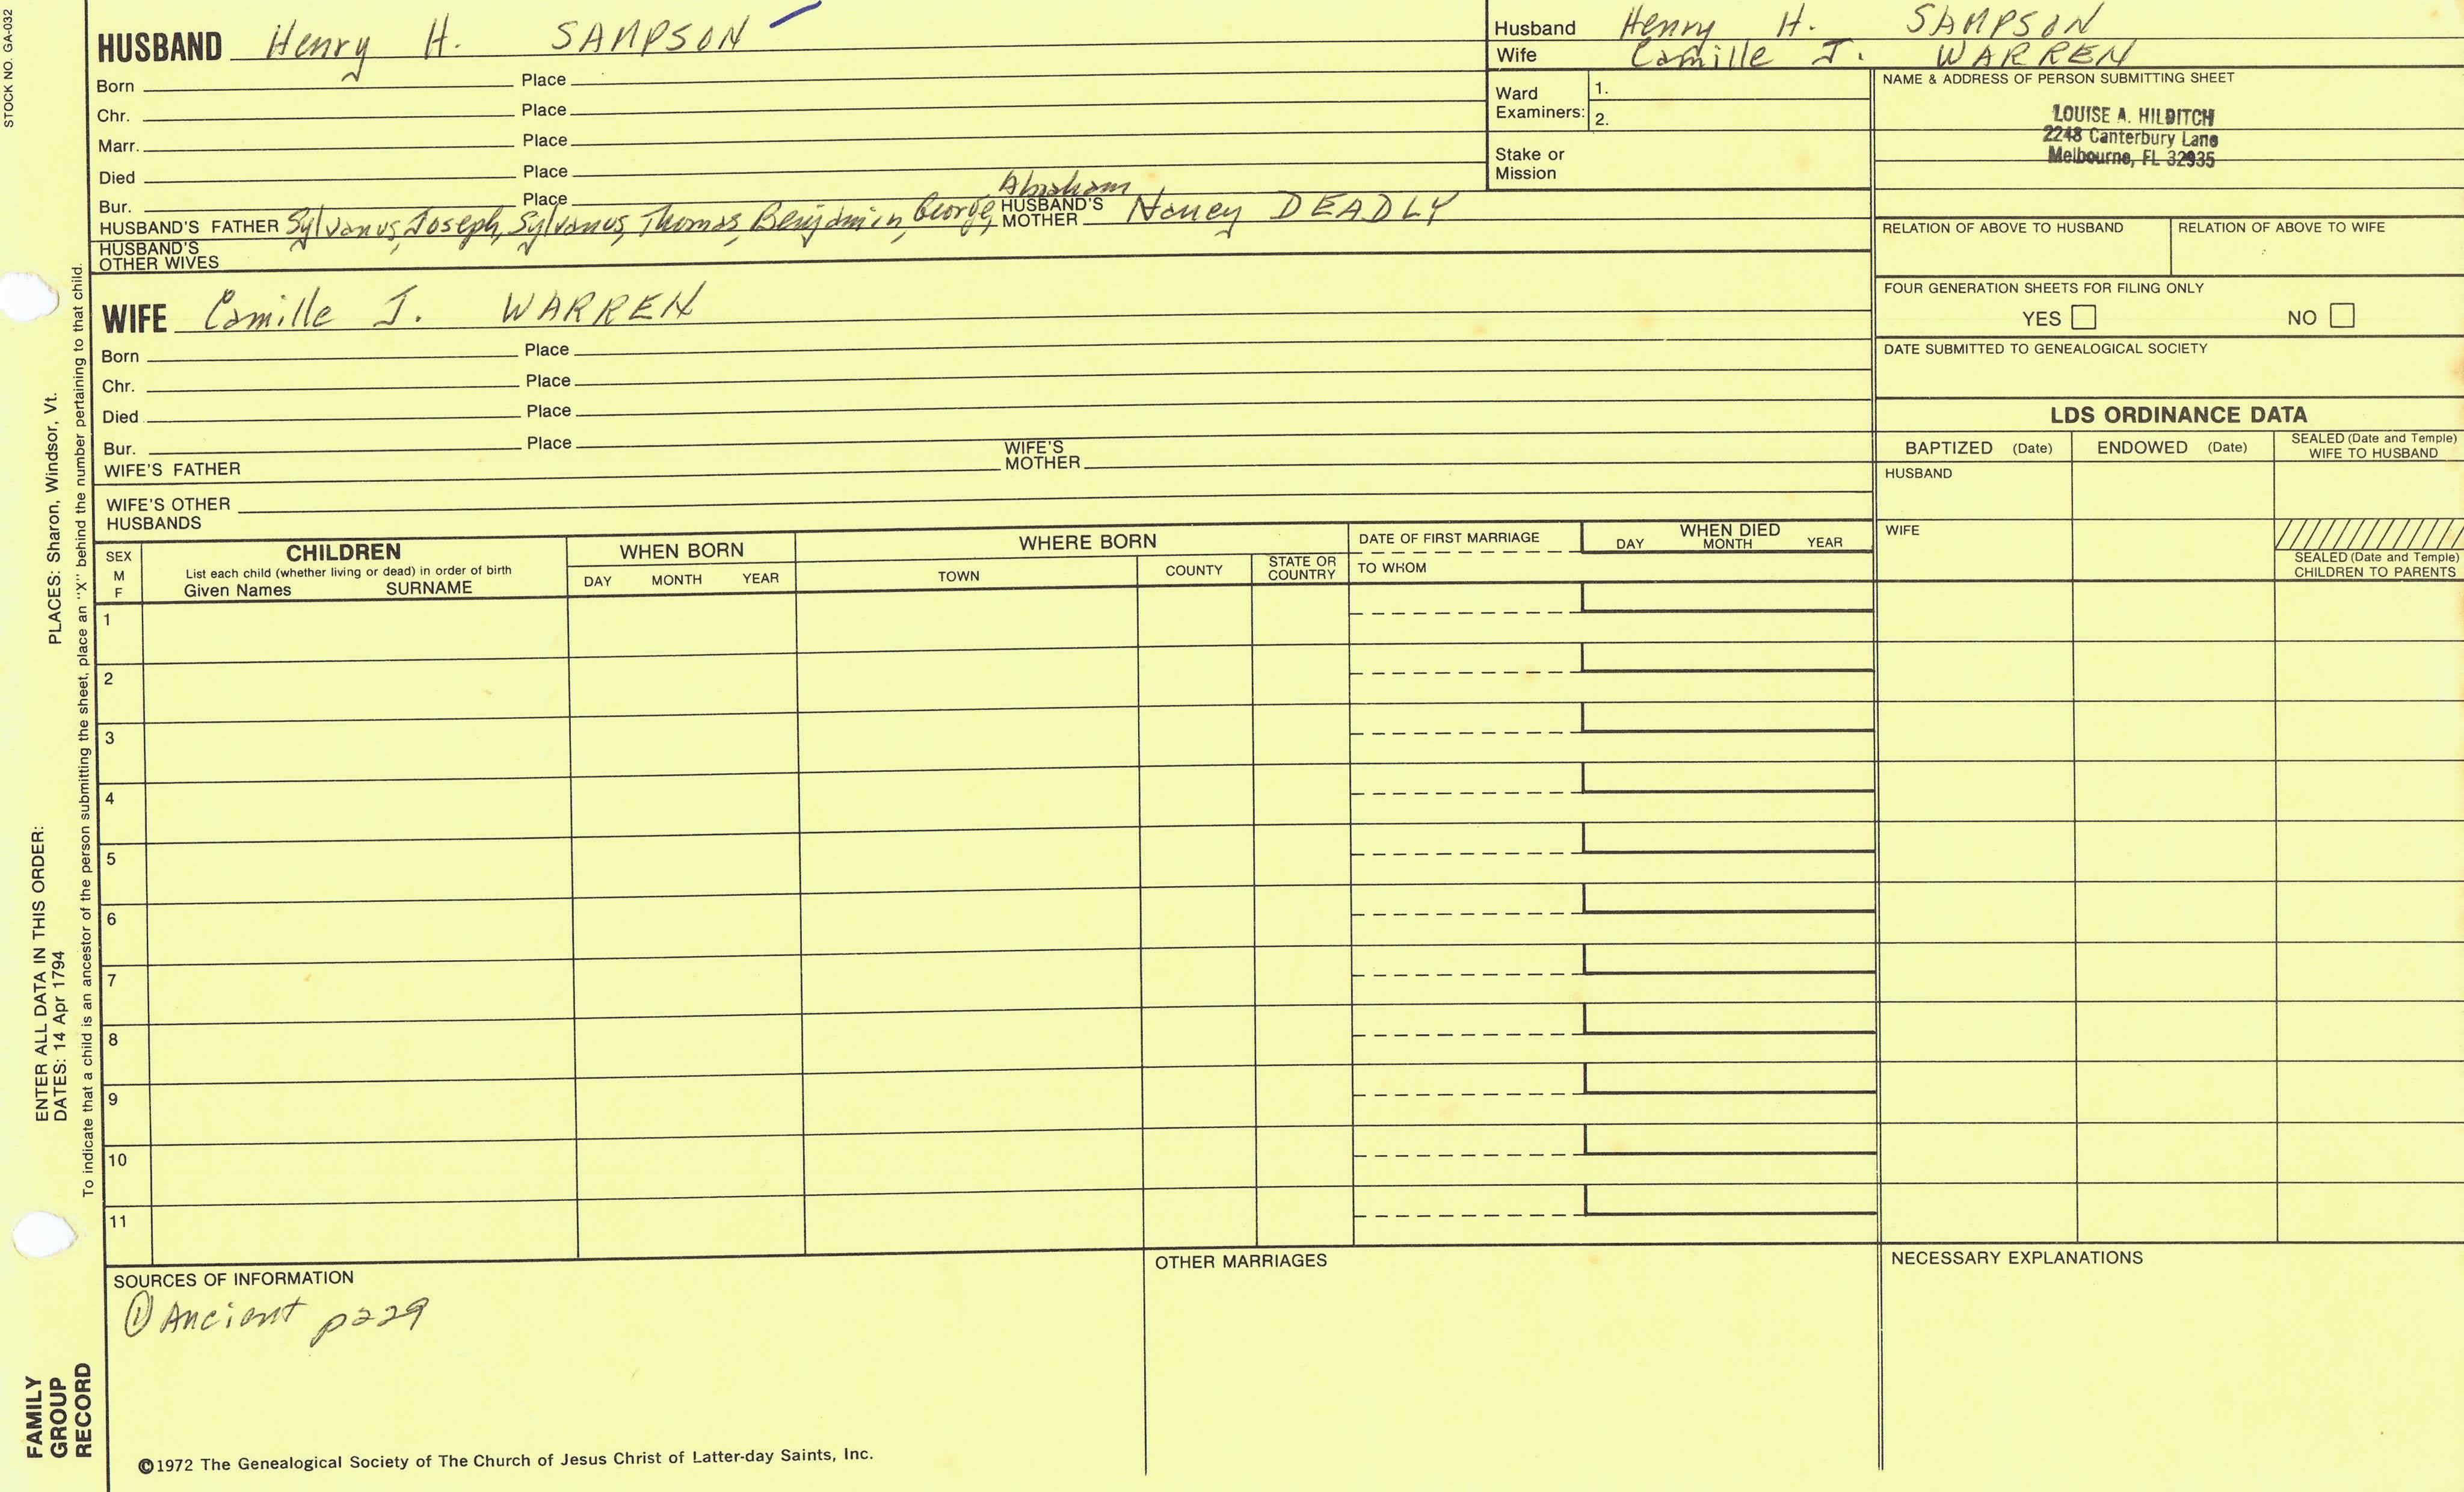 STOCK NO. GA-032
HUSBAND Henry H. SAMPSON
Born Place
Chr. Place
Marr. Place
Died Place
Bur. Place
Abraham
HUSBAND'S FATHER Sylvanus, Joseph, Sylvanus, Thomas, Benjamin, George, HUSBAND'S MOTHER Nancy DEADLY
HUSBAND'S OTHER WIVES
WIFE Camille J. WARREN
Born Place
Chr. Place
Died Place
Bur. Place
WIFE'S FATHER WIFE'S MOTHER
WIFE'S OTHER HUSBANDS
Husband Henry H. SAMPSON
Wife Camille J. WARREN
Ward Examiners: 1.
2.
Stake or Mission
NAME & ADDRESS OF PERSON SUBMITTING SHEET
LOUISE A. HILDITCH
2248 Canterbury Lane
Melbourne, FL 32935
RELATION OF ABOVE TO HUSBAND RELATION OF ABOVE TO WIFE
FOUR GENERATION SHEETS FOR FILING ONLY
YES NO
DATE SUBMITTED TO GENEALOGICAL SOCIETY
LDS ORDINANCE DATA
BAPTIZED (Date) ENDOWED (Date) SEALED (Date and Temple) WIFE TO HUSBAND
HUSBAND
WIFE
SEALED (Date and Temple) CHILDREN TO PARENTS
SEX M F
CHILDREN
List each child (whether living or dead) in order of birth
Given Names SURNAME
WHEN BORN
DAY MONTH YEAR
WHERE BORN
TOWN COUNTY STATE OR COUNTRY
DATE OF FIRST MARRIAGE
TO WHOM
WHEN DIED
DAY MONTH YEAR
1
2
3
4
5
6
7
8
9
10
11
SOURCES OF INFORMATION
① Ancient p229
OTHER MARRIAGES
NECESSARY EXPLANATIONS
©1972 The Genealogical Society of The Church of Jesus Christ of Latter-day Saints, Inc.
FAMILY
GROUP
RECORD
ENTER ALL DATA IN THIS ORDER:
DATES: 14 Apr 1794
PLACES: Sharon, Windsor, Vt.
To indicate that a child is an ancestor of the person submitting the sheet, place an "X" behind the number pertaining to that child.